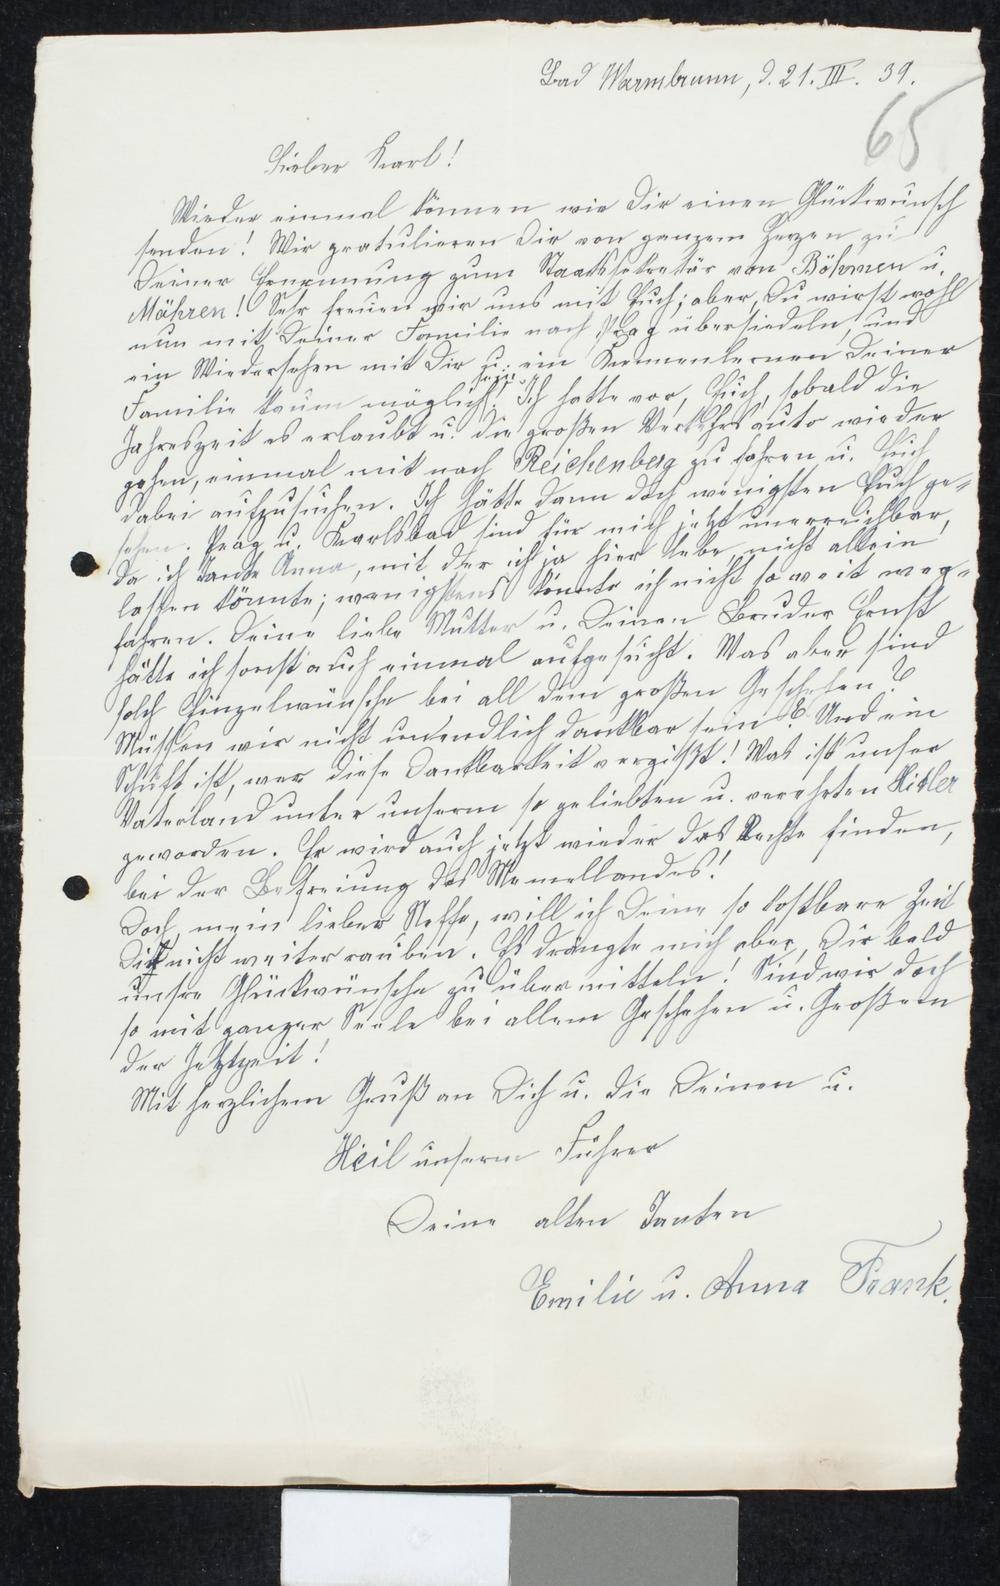 Bad Warmbrunn, d. 21. III. 39.
65
Lieber Karl!
Wieder einmal können wir Dir einen Glückwunsch
senden! Wir gratulieren Dir von ganzem Herzen zu
Deiner Ernennung zum Staatssekretär von Böhmen u.
Mähren! Sehr freuen wir uns mit Euch; aber, Du wirst wohl
nun mit Deiner Familie nach Prag übersiedeln, und
ein Wiedersehen mit Dir u. ein Kennenlernen Deiner
Familie kaum möglich sein! Ich hatte vor, Euch, sobald die
Jahreszeit es erlaubt u. die großen Verkehrsauto wieder
gehen, einmal mit nach Reichenberg zu fahren u. Euch
dabei aufzusuchen. Ich hätte dann doch wenigsten Euch ge=
sehen. Prag u. Karlsbad sind für mich jetzt unerreichbar,
da ich Tante Anna, mit der ich ja hier lebe, nicht allein
lassen könnte; wenigstens könnte ich nicht so weit weg=
fahren. Deine liebe Mutter u. Deinen Bruder Ernst
hätte ich sonst auch einmal aufgesucht. Was aber sind
solch Einzelwünsche bei all dem großen Geschehen?
Müssen wir nicht unendlich dankbar sein? Und ein
Schuft ist, wer diese Dankbarkeit vergißt! Was ist unser
Vaterland unter unserm so geliebten u. verehrten Hitler
geworden. Er wird auch jetzt wieder das Rechte finden,
bei der Befreiung des Memellandes!
Doch, mein lieber Neffe, will ich Deine so kostbare Zeit
Dir nicht weiter rauben. Es drängte mich aber, Dir bald
unsre Glückwünsche zu übermitteln! Sind wir doch
so mit ganzer Seele bei allem Geschehen u. Großem
der Jetztzeit!
Mit herzlichem Gruß an Dich u. die Deinen u.
Heil unserm Führer
Deine alten Tanten
Emilie u. Anna Frank.